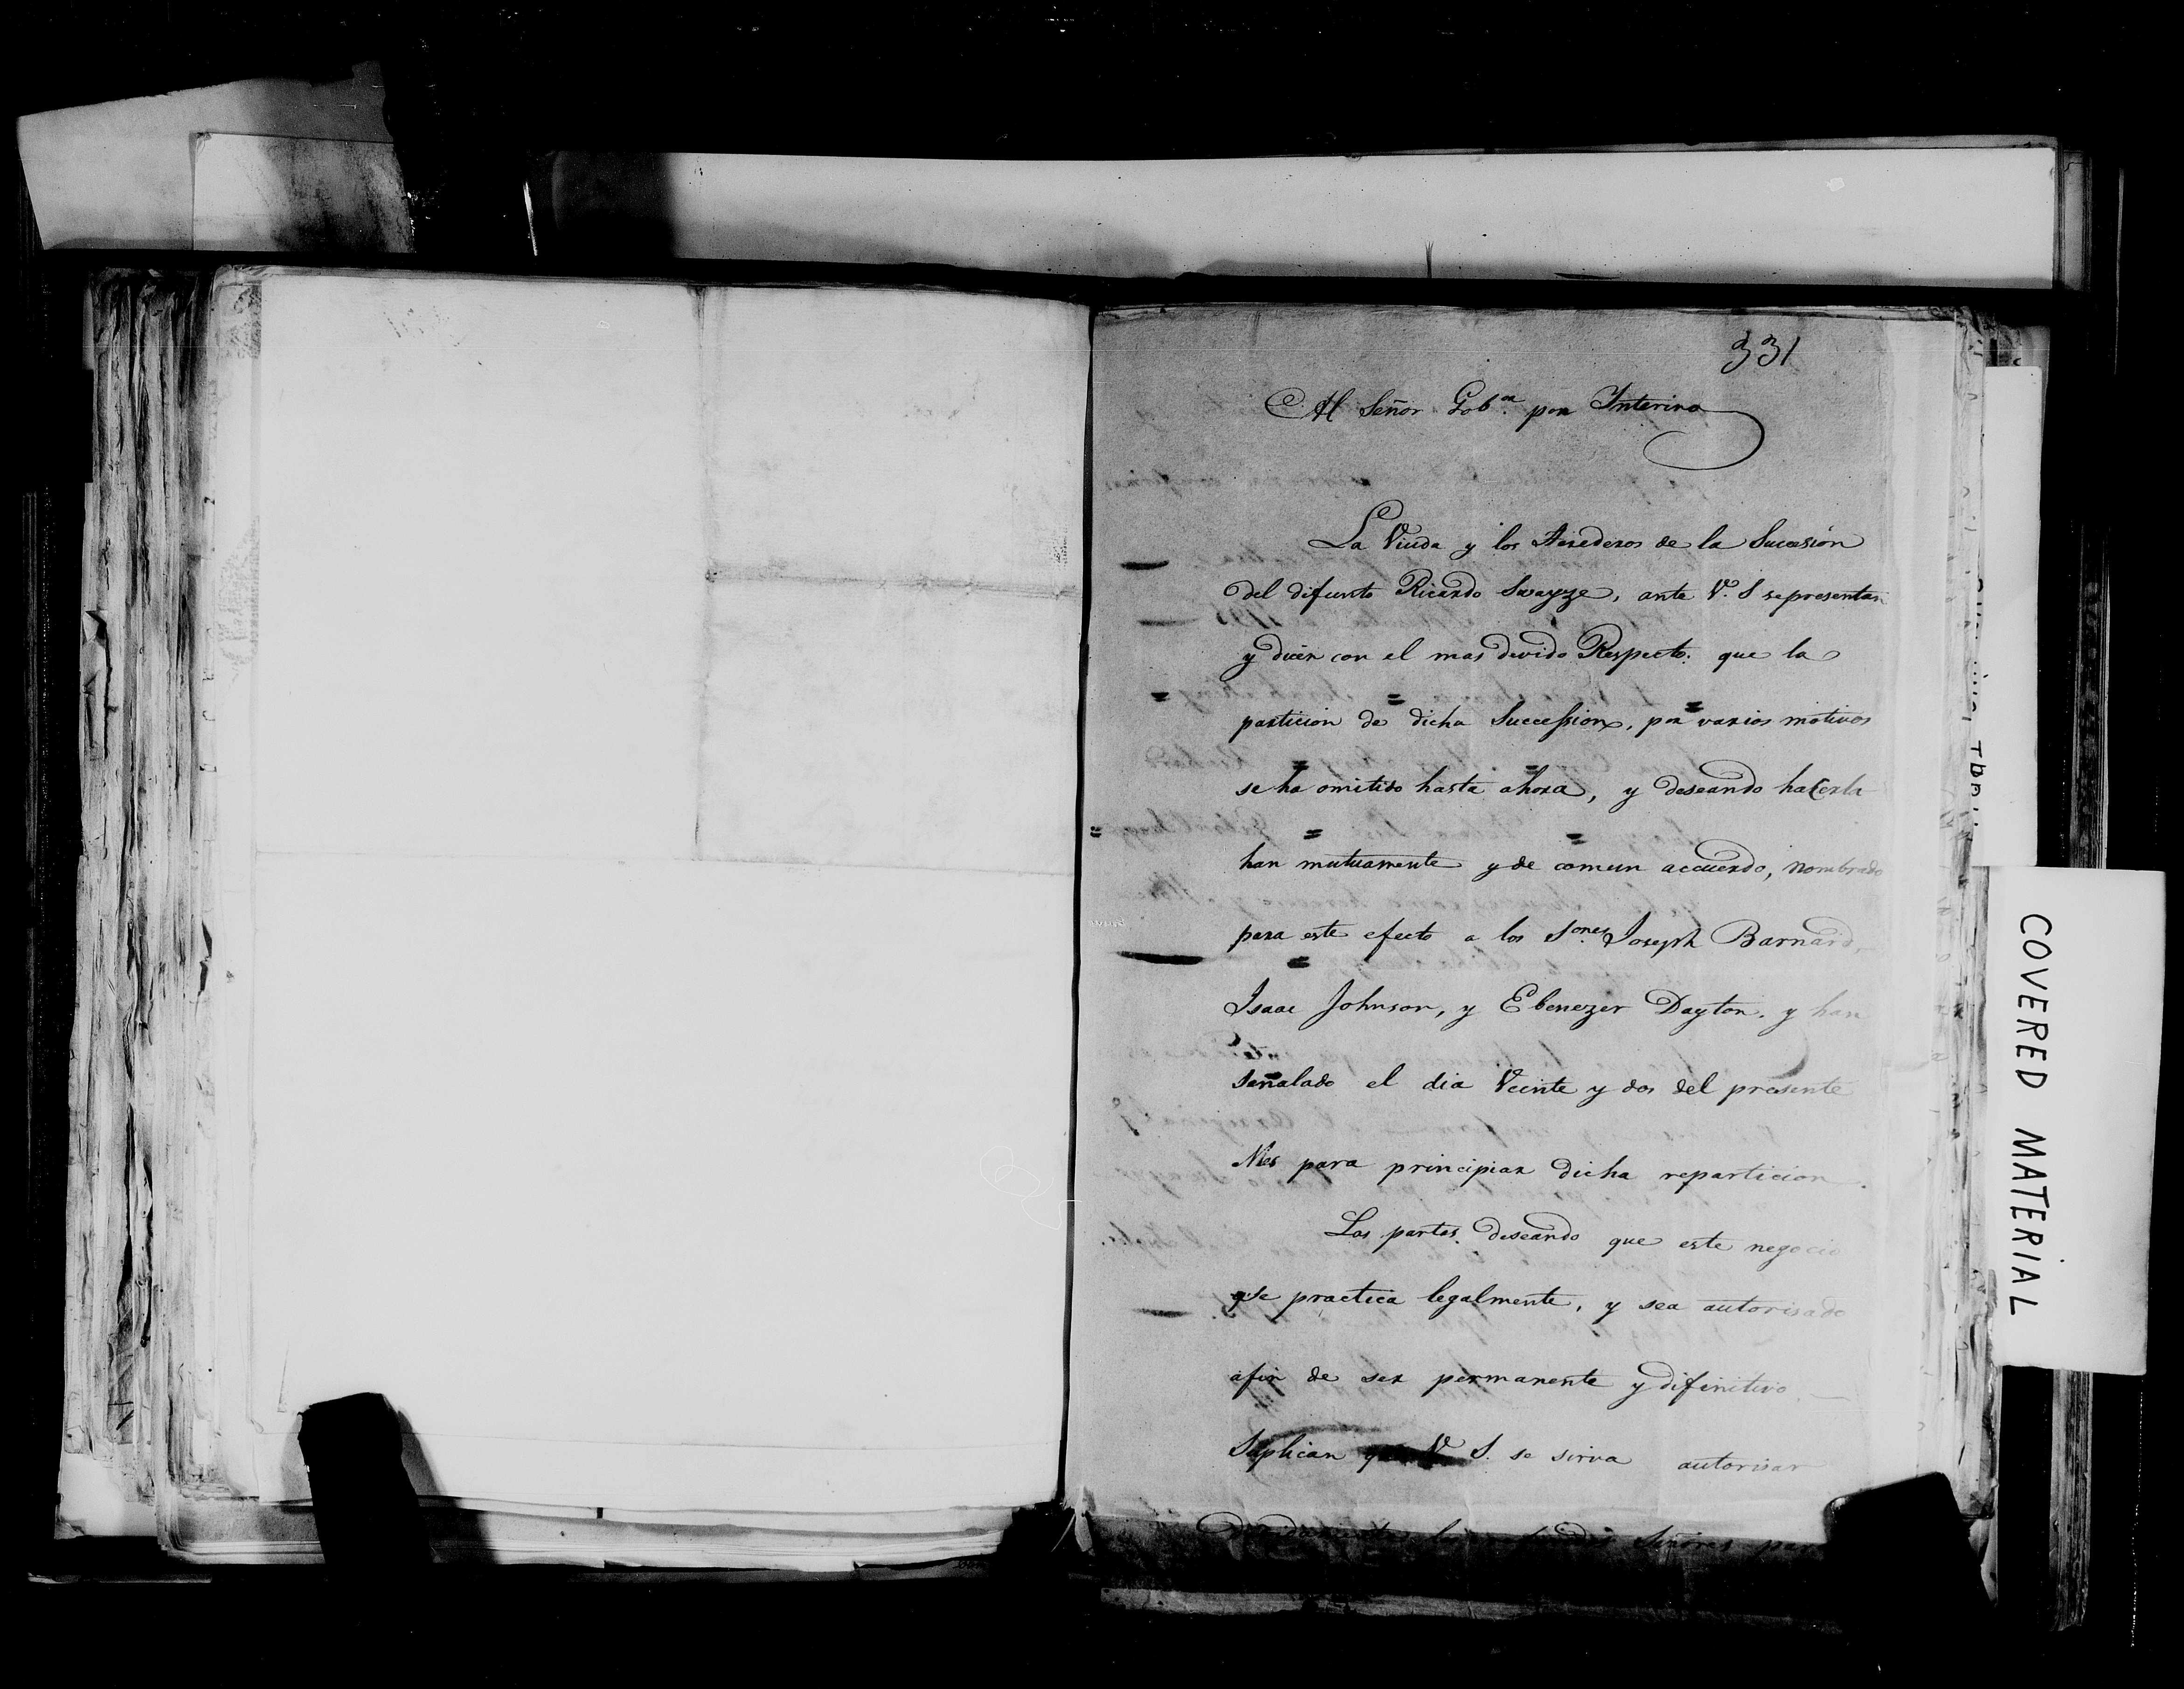 331
Al Señor Gob.or por Interino
La Viuda y los Herederos de la Sucesión
del difunto Ricardo Swayze, ante V. S representan
y dicen con el mas devido Respecto: que la
particion de dicha Succession, por varios motivos
se ha omitido hasta ahora, y deseando hacerla
han mutuamente y de comun accuerdo, nombrado
para este efecto a los S.ores Joseph Barnard,
Isaac Johnson, y Ebenezer Dayton. y han
señalado el dia Veinte y dos del presente
Mes para principiar dicha reparticion.
Las partes. deseando que este negocio
se practica legalmente, y sea autorisado
afin de ser permanente y difinitivo
Suplican que V. S. se sirva autorisar
los Señores par
COVERED MATERIAL